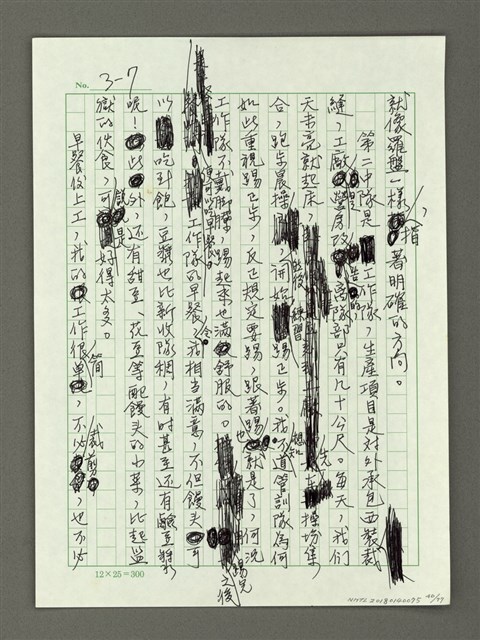 No. 3-7
就像羅盤一樣,指著明確的方向。
第二中隊是工作隊,生產項目是對外承包西裝裁
縫,工廠是營房改造的,離隊部只有几十公尺。每天,我們
天未亮就起床,先在操場集
合,跑步晨操,然後開始練習踢正步。我不知道管訓隊為何
如此重視踢正步,反正規定要踢,跟著踢也就是了,何況
工作隊不戴脚鐐,踢起來也滿舒服的。踢完之後
便可以吃早餐。工作隊的早餐令我相當滿意,不但饅頭可
以吃到飽,豆漿也比新收隊稠,有時甚至還有鹹豆漿
呢!此外,还有甜豆、花豆等配饅头的小菜,比起监
獄的伙食,可說是好得太多。
早餐後上工,我的工作很簡單,不必裁剪,也不必
12×25=300
NMTL20180160095 40/77